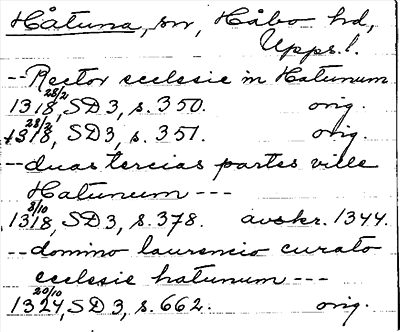 Håtuna, sn, Håbo hd,
Upps. l.
--Rector ecclesie in Hatunum
1318 28/2, SD 3, s. 350. orig.
1318 28/2, SD 3, s. 351. orig.
--duas tercias partes ville
Hatuneum ---
1318 8/10, SD 3, s. 378. avskr. 1344.
--domino laurencio curato
ecclesie hatunum ---
1324 20/10, SD 3, s. 662. orig.